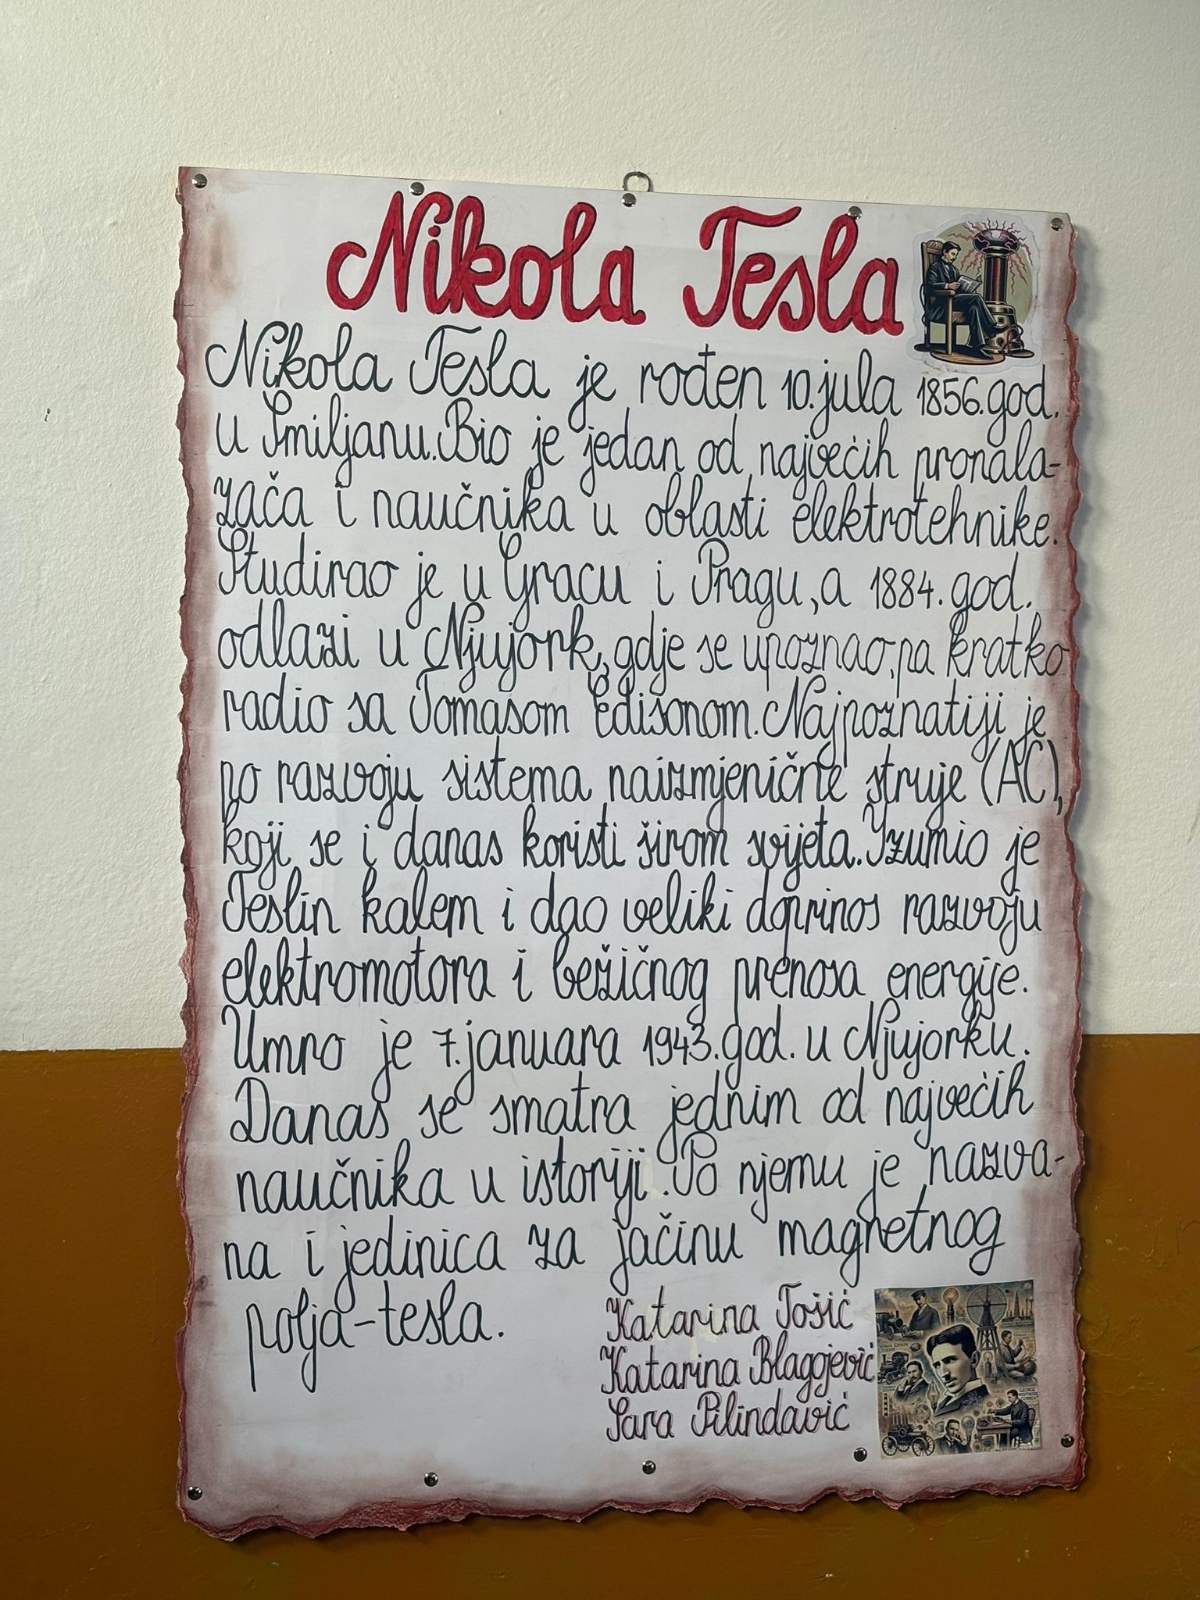 Nikola Tesla
Nikola Tesla je rođen 10.jula 1856.god.
u Smiljanu.Bio je jedan od najvećih pronala-
zača i naučnika u oblasti elektrotehnike.
Studirao je u Gracu i Pragu, a 1884.god.
odlazi u Njujork, gdje se upoznao, pa kratko
radio sa Tomasom Edisonom. Najpoznatiji je
po razvoju sistema naizmjenične struje (AC),
koji se i danas koristi širom svijeta. Izumio je
Teslin kalem i dao veliki doprinos razvoju
elektromotora i bežičnog prenosa energije.
Umro je 7.januara 1943.god. u Njujorku.
Danas se smatra jednim od najvećih
naučnika u istoriji. Po njemu je nazva-
na i jedinica za jačinu magnetnog
polja-tesla.
Katarina Tošić
Katarina Blagojević
Sara Pilindavić